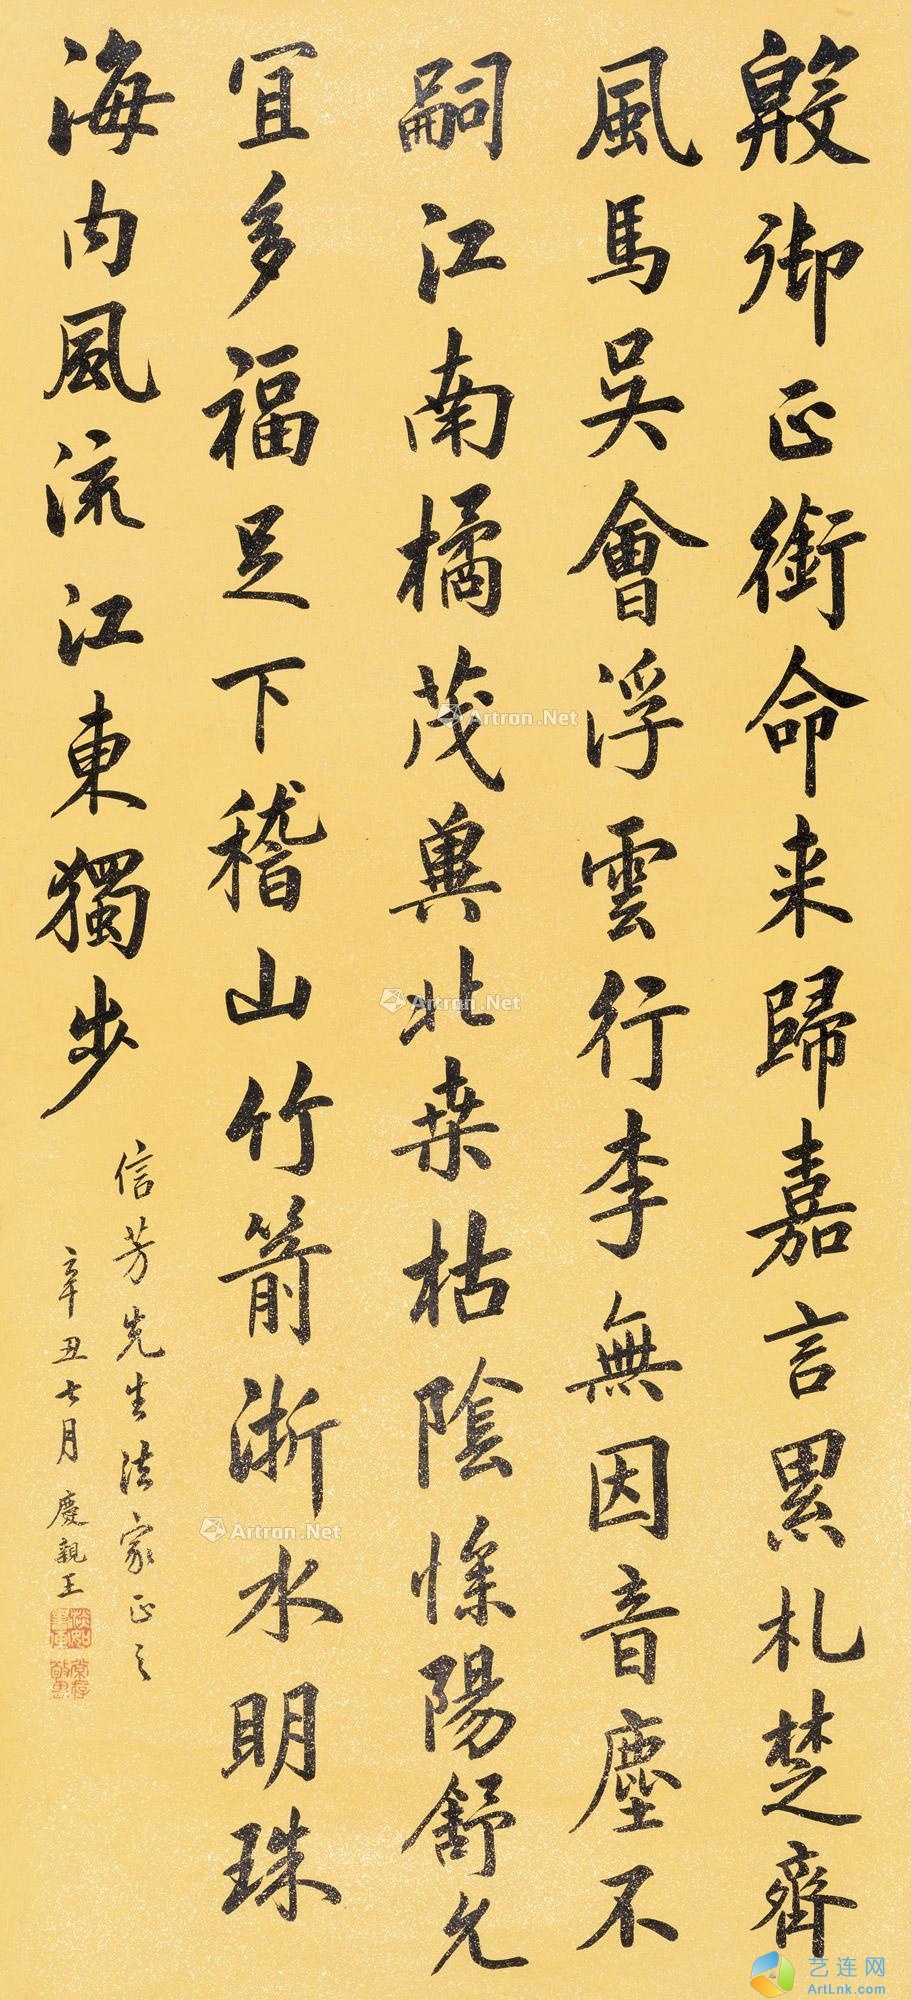 殷御正銜命来歸嘉言累札楚齊
風馬吳會浮雲行李無因音塵不
嗣江南橘茂兾北桒枯陰惨陽舒允
宜多福足下稽山竹箭淅水明珠
海内風流江東獨步
信芳先生法家正之
辛丑七月 慶親王
Artron.Net
Artron.Net
Artron.Net
艺连网
ArtLnk.com